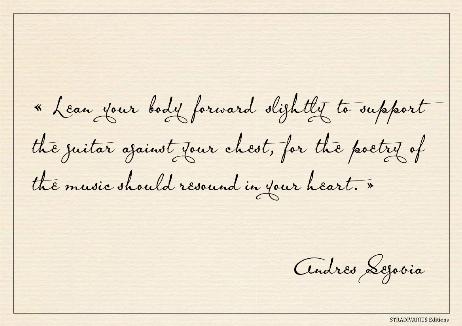 « Lean your body forward slightly to support
the guitar against your chest, for the poetry of
the music should resound in your heart. »
Andres Segovia
STRADIVARIUS Editions